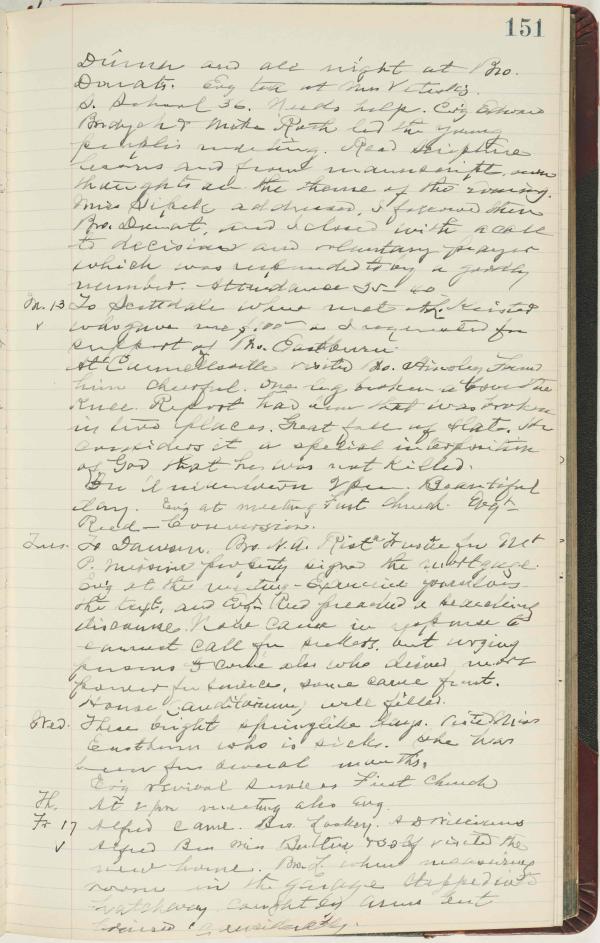 151
Dinner and all night at Bro.
Donats. Evg tea at Mrs
S. School 36. Needs help. Evg Edward
& Mike Roth led the young
people's meeting. Read scripture
lesson and from manuscript some
thoughts on the theme of the evening.
Miss addressed, I followed then
Bro. Donat, and I closed with a call
to decision and voluntary prayer
which was responded to by a goodly
number. Attendance 35-40
Mo. 13 To Scottdale where met Mr. Keister
who gave me as I requested for
support of Bro. Eastburn.
At Connellsville visited Bro. Ainsley Found
him cheerful. One leg broken above the
knee. Report had him that was broken
in two places. Great fall of slate. He
considers it a special interposition
of God that he was not killed.
In Uniontown 2 pm. Beautiful
day. Evg at meeting First Church. Evgt
Reed - Conversion.
Tues. To Dawson. Bro. N. A. Rist Trustee for Mt
P. Mission property signs the mortgage.
Evg at the meeting - Examine yourselves
the text, and Evgt. Reed preached a searching
discourse. None came in response to
earnest call for seekers, but urging
persons to come also who desired more
power for service, some came front.
House (auditorium) well filled.
Wed. These bright springlike days. Visited Miss
Eastburn who is sick. She has
been for several months.
Evg revival services First Church
Th. At 2 pm meeting also Evg.
Fr 17 Alfred came. Bro. S D Williams
Alfred Bro Miss visited the
new home. Bro. L. when measuring
room in the garage stepped into
hatchway caught by arms but
bruised considerably.